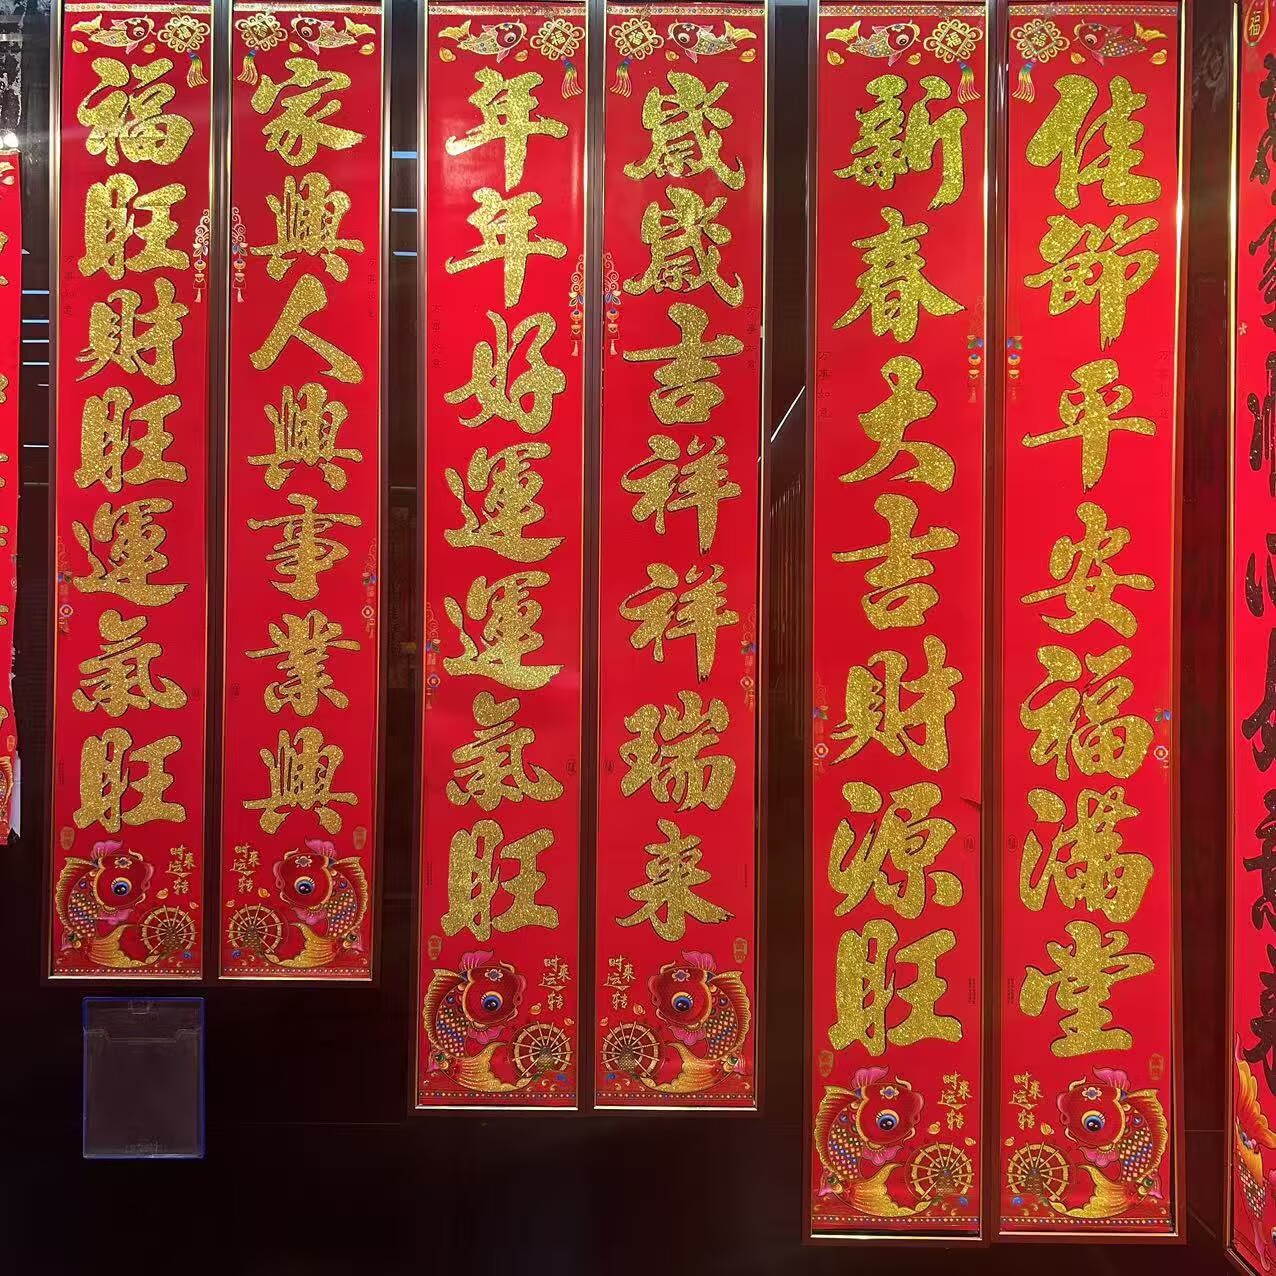 福旺財旺運氣旺
家興人興事業興
年年好運運氣旺
歲歲吉祥祥瑞來
新春大吉財源旺
佳節平安福滿堂
時來运转
時來运转
時來运转
時來运转
時來运转
時來运转